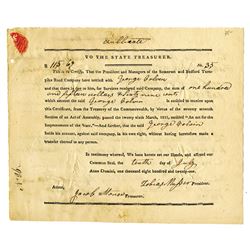 Duplicate
TO THE STATE TREASURER.
$ 115 69 No. 35
This is to Certify, That the President and Managers of the Somerset and Bedford Turnpike Road Company have settled with George
and that there is due to him, for Services rendered said Company, the sum of one hundred
and fifteen dollars sixty nine cents
which amount the said George is entitled to
receive, from the Treasury of the Commonwealth, by virtue of the twenty seventh
Section of an Act of Assembly, passed the twenty sixth March, 1821, entitled "An Act for the
Improvement of the State." And further, that the said George
holds his account, against said company, in his own right, without having partially made
a transfer thereof to any person.
In testimony whereof, We have hereunto set our Hands, and affixed our
Common Seal, the tenth day of July
Anno Domini, one thousand eight hundred and twenty-
President
Attest,
Jacob Treasurer.